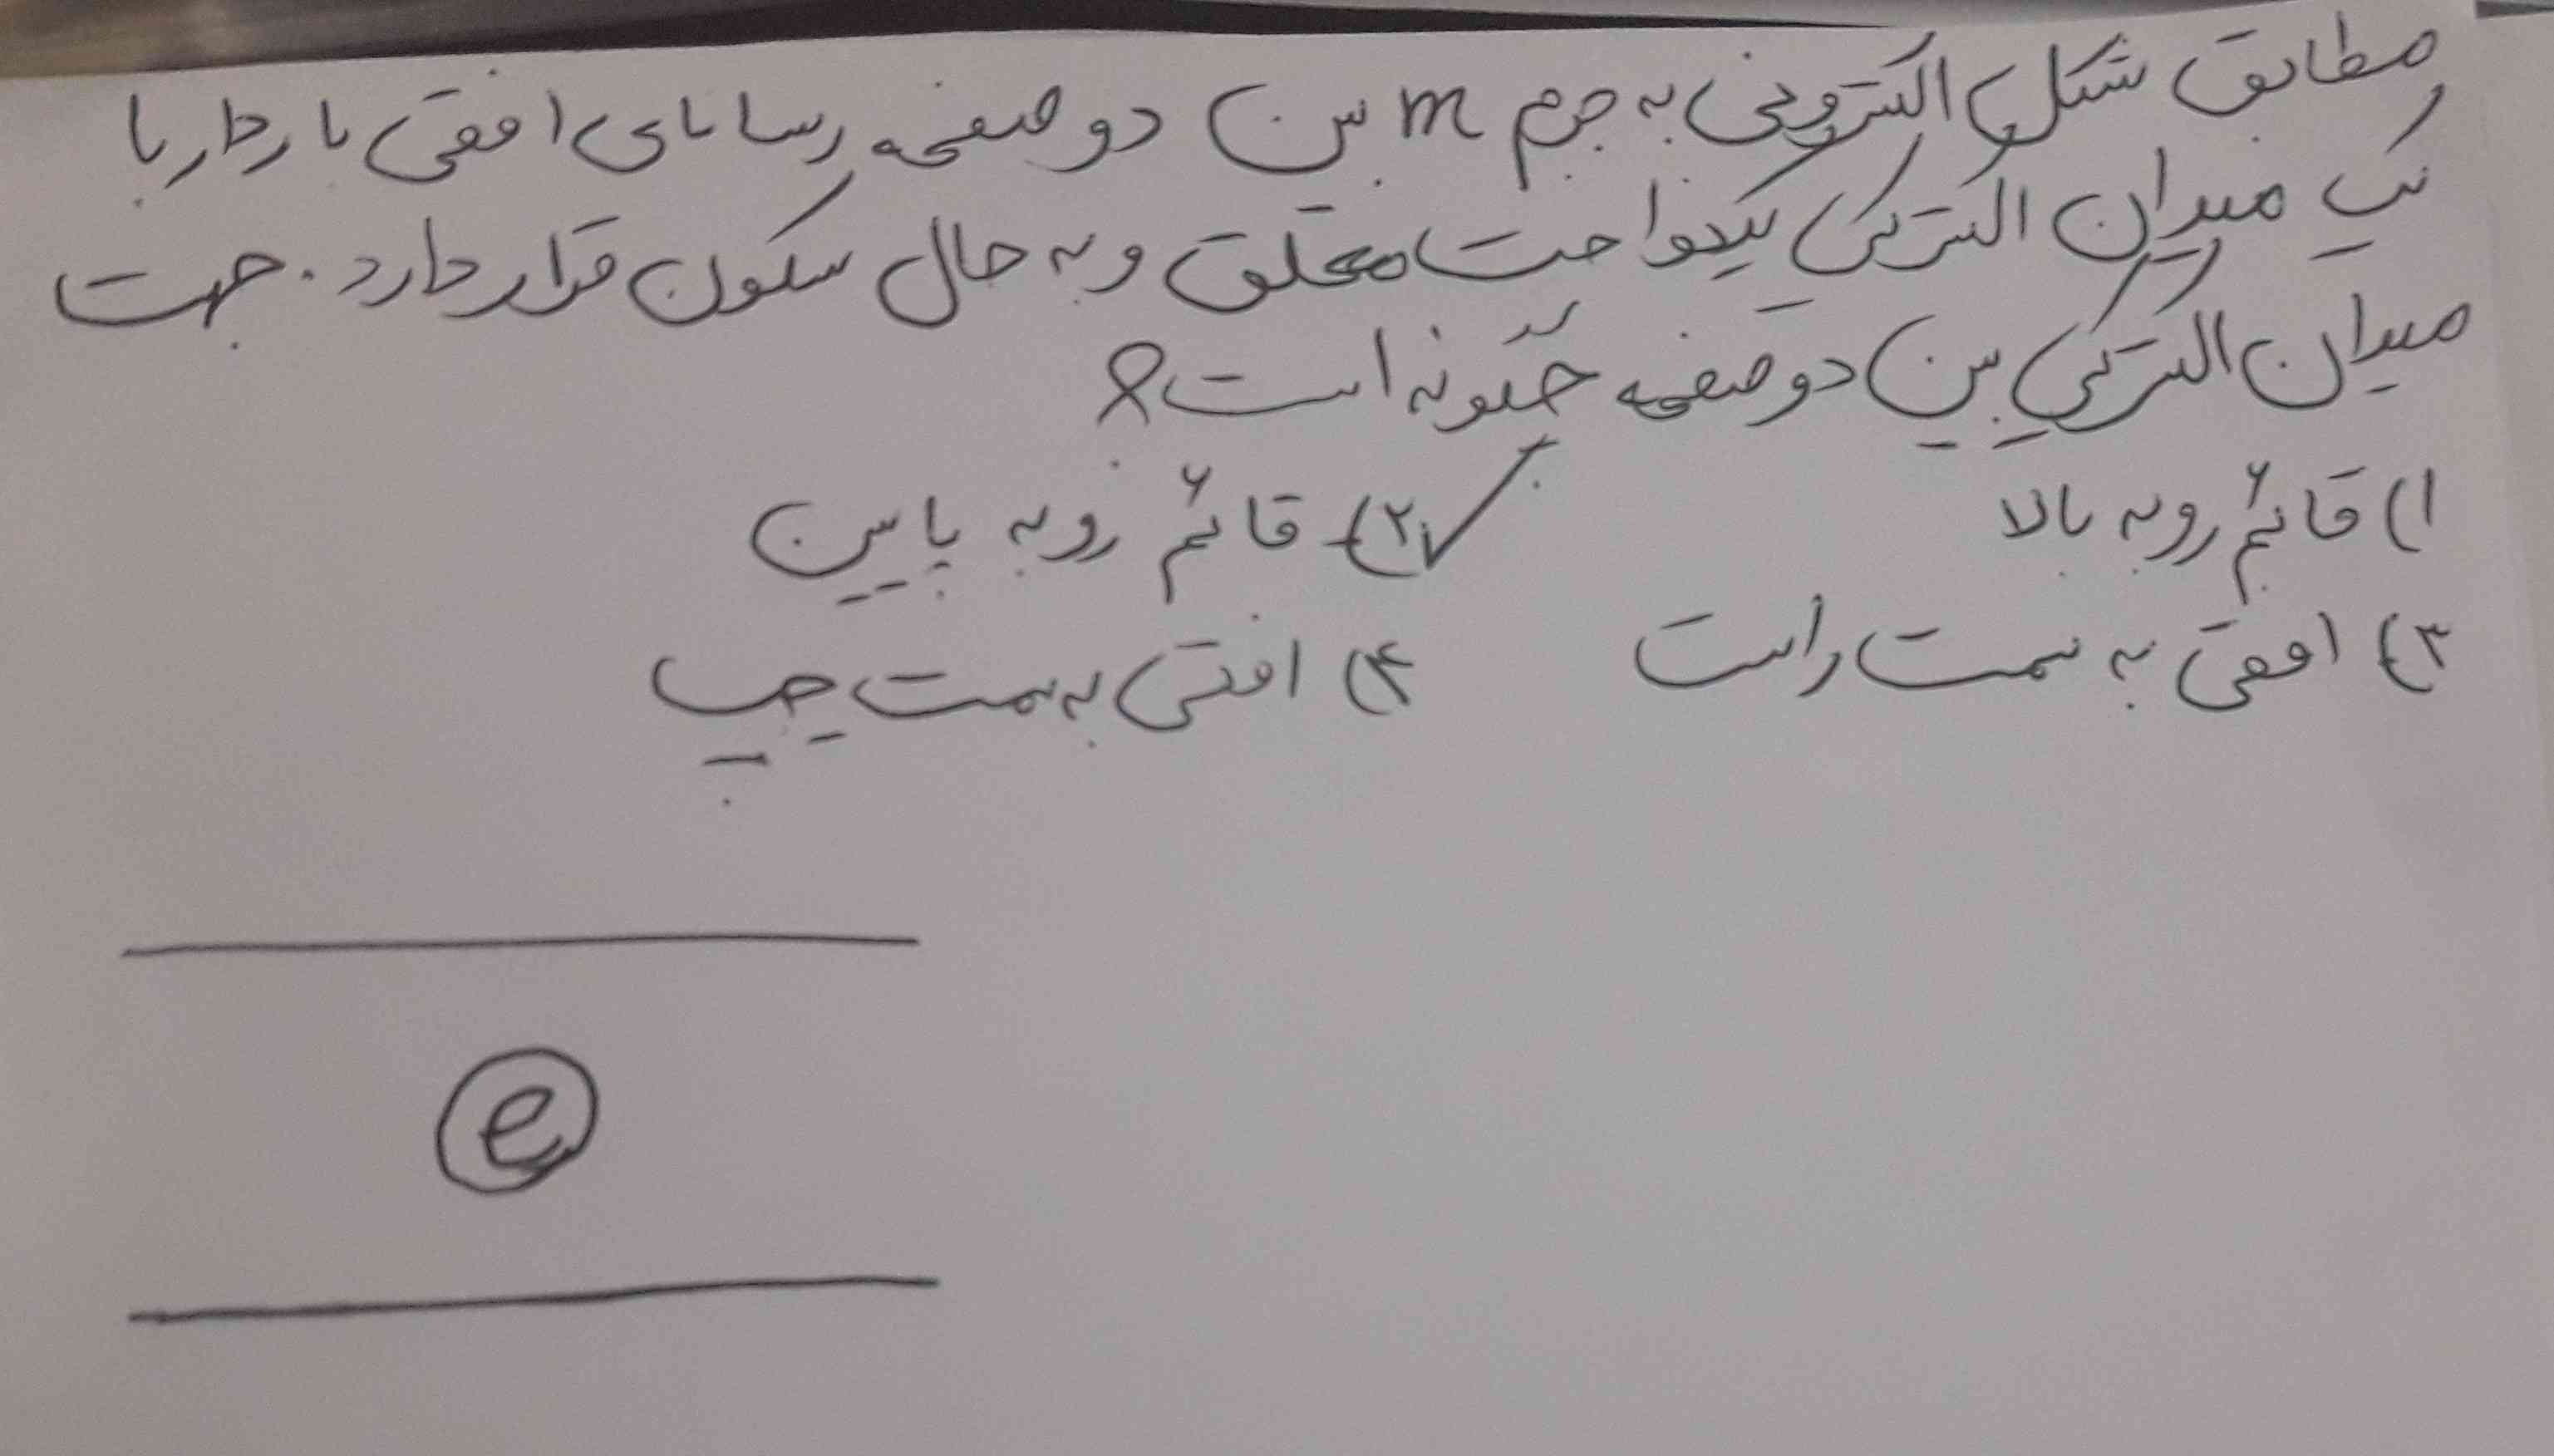 مطابق شکل الکترونی به جرم m بین دو صفحه رسانای افقی باردار با
یک میدان الکتریکی یکنواخت معلق و به حال سکون قرار دارد. جهت
میدان الکتریکی بین دو صفحه چگونه است؟
۱) قائم رو به بالا ۲) قائم رو به پایین
۳) افقی به سمت راست ۴) افقی به سمت چپ
e